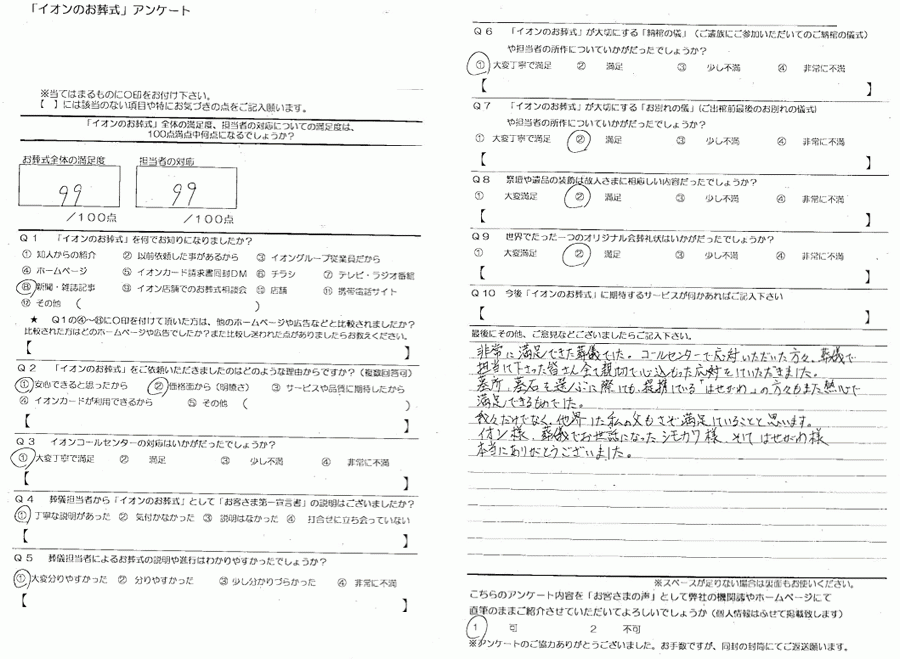 「イオンのお葬式」アンケート
※当てはまるものに○印をお付け下さい。
【 】には該当のない項目や特にお気づきの点をご記入願います。
「イオンのお葬式」全体の満足度、担当者の対応についての満足度は、
100点満点中何点になるでしょうか?
お葬式全体の満足度 担当者の対応
99 99
/100点 /100点
Q1 「イオンのお葬式」を何でお知りになりましたか?
① 知人からの紹介 ② 以前依頼した事があるから ③ イオングループ従業員だから
④ ホームページ ⑤ イオンカード請求書同封DM ⑥ チラシ ⑦ テレビ・ラジオ番組
⑧ 新聞・雑誌記事 ⑨ イオン店舗でのお葬式相談会 ⑩ 店舗 ⑪ 携帯電話サイト
⑫ その他 ( )
★ Q1の④~⑪に○印を付けて頂いた方は、他のホームページや広告などと比較されましたか?
比較された方はどのホームページや広告でしたか?また比較し迷われた点がありましたらお教えください。
【 】
Q2 「イオンのお葬式」をご依頼いただきましたのはどのような理由からですか?(複数回答可)
① 安心できると思ったから ② 価格面から(明瞭さ) ③ サービスや品質に期待したから
④ イオンカードが利用できるから ⑤ その他 ( )
【 】
Q3 イオンコールセンターの対応はいかがだったでしょうか?
① 大変丁寧で満足 ② 満足 ③ 少し不満 ④ 非常に不満
【 】
Q4 葬儀担当者から「イオンのお葬式」として「お客さま第一宣言書」の説明はございましたか?
① 丁寧な説明があった ② 気付かなかった ③ 説明はなかった ④ 打合せに立ち会っていない
【 】
Q5 葬儀担当者によるお葬式の説明や進行はわかりやすかったでしょうか?
① 大変分りやすかった ② 分りやすかった ③ 少し分かりづらかった ④ 非常に不満
【 】
Q6 「イオンのお葬式」が大切にする「納棺の儀」(ご遺族にご参加いただいてのご納棺の儀式)
や担当者の所作についていかがだったでしょうか?
① 大変丁寧で満足 ② 満足 ③ 少し不満 ④ 非常に不満
【 】
Q7 「イオンのお葬式」が大切にする「お別れの儀」(ご出棺前最後のお別れの儀式)
や担当者の所作についていかがだったでしょうか?
① 大変丁寧で満足 ② 満足 ③ 少し不満 ④ 非常に不満
【 】
Q8 祭壇や遺品の装飾は故人さまに相応しい内容だったでしょうか?
① 大変満足 ② 満足 ③ 少し不満 ④ 非常に不満
【 】
Q9 世界でたった一つのオリジナル会葬礼状はいかがだったでしょうか?
① 大変満足 ② 満足 ③ 少し不満 ④ 非常に不満
【 】
Q10 今後「イオンのお葬式」に期待するサービスが何かあればご記入下さい
【 】
最後にその他、ご意見などございましたらご記入下さい。
非常に満足できた葬儀でした。コールセンターで応対いただいた方々、葬儀で
担当して下さった皆さん全て親切で心込もった応対をしていただきました。
墓所、墓石を選ぶに際しても、提携している「はせがわ」の方々もまた熱心で
満足できるものでした。
我々だけでなく、他界した私の父もさぞ満足していることと思います。
イオン様、葬儀でお世話になったシモカワ様、そしてはせがわ様
本当にありがとうございました。
※スペースが足りない場合は裏面もお使いください。
こちらのアンケート内容を「お客さまの声」として弊社の機関誌やホームページにて
直筆のままご紹介させていただいてよろしいでしょうか(個人情報はふせて掲載致します)
1 可 2 不可
※アンケートのご協力ありがとうございました。お手数ですが、同封の封筒にてご返送願います。